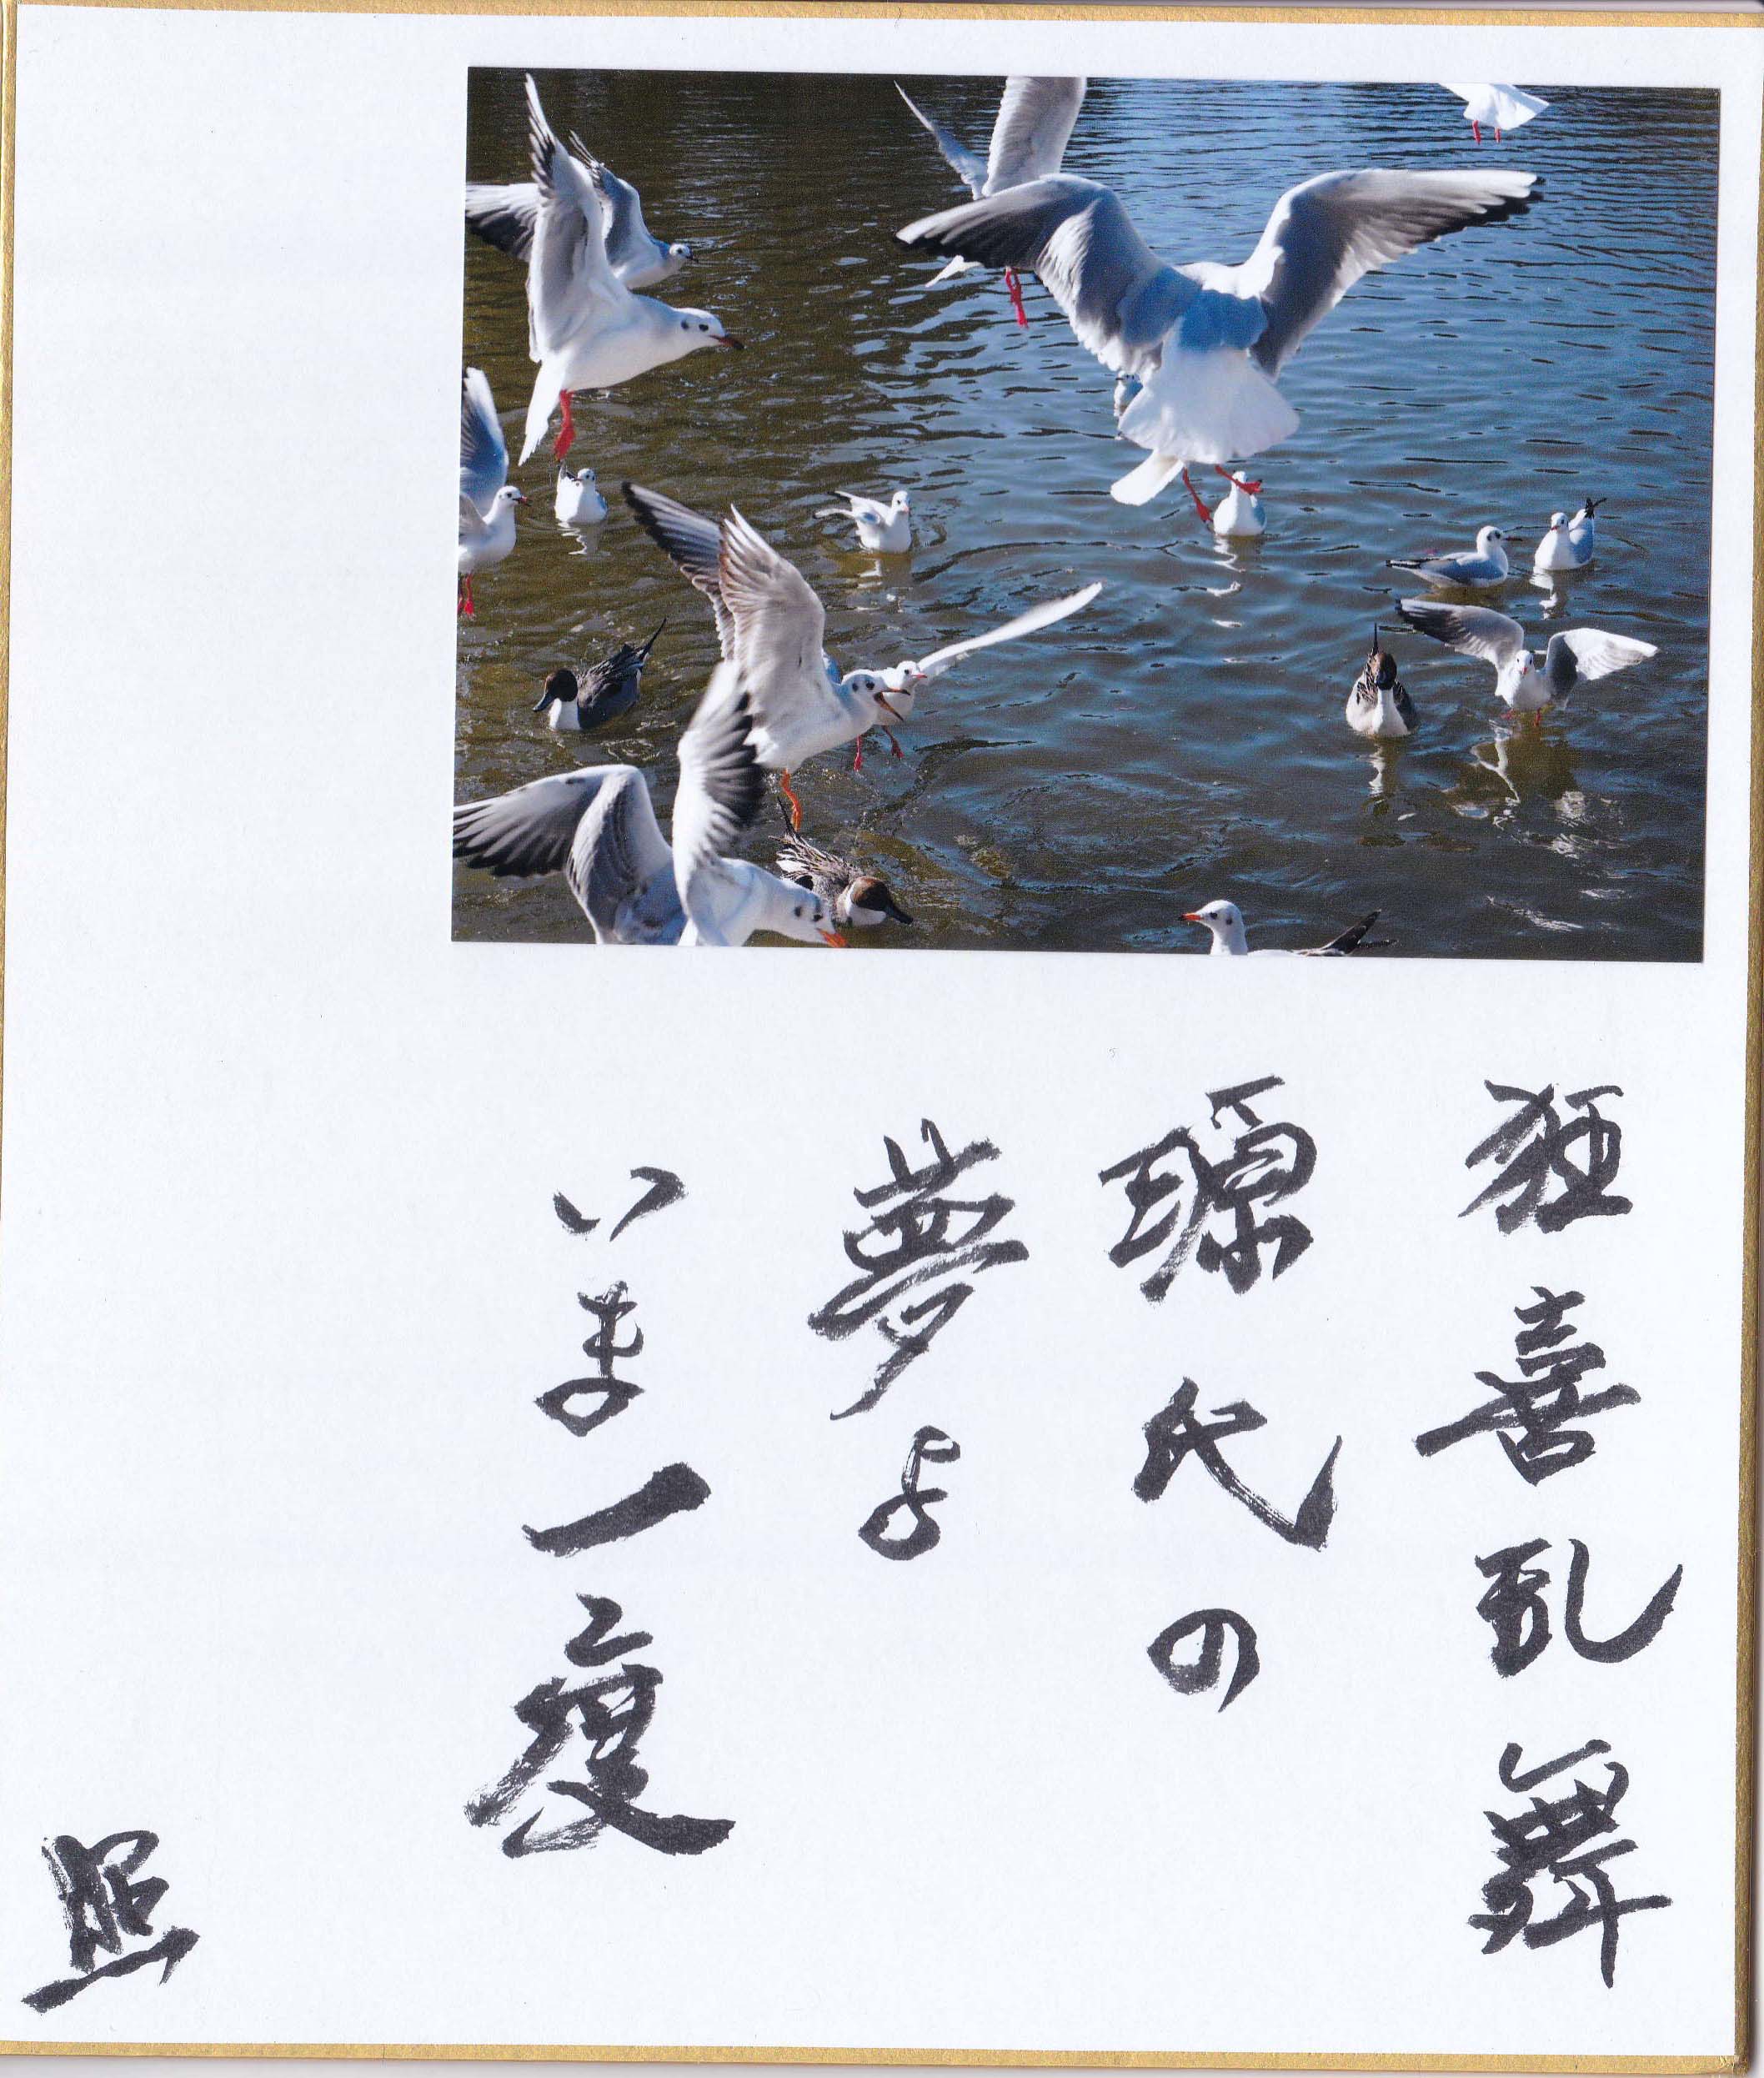 狂喜乱舞
代の
夢よ
いま一度
照